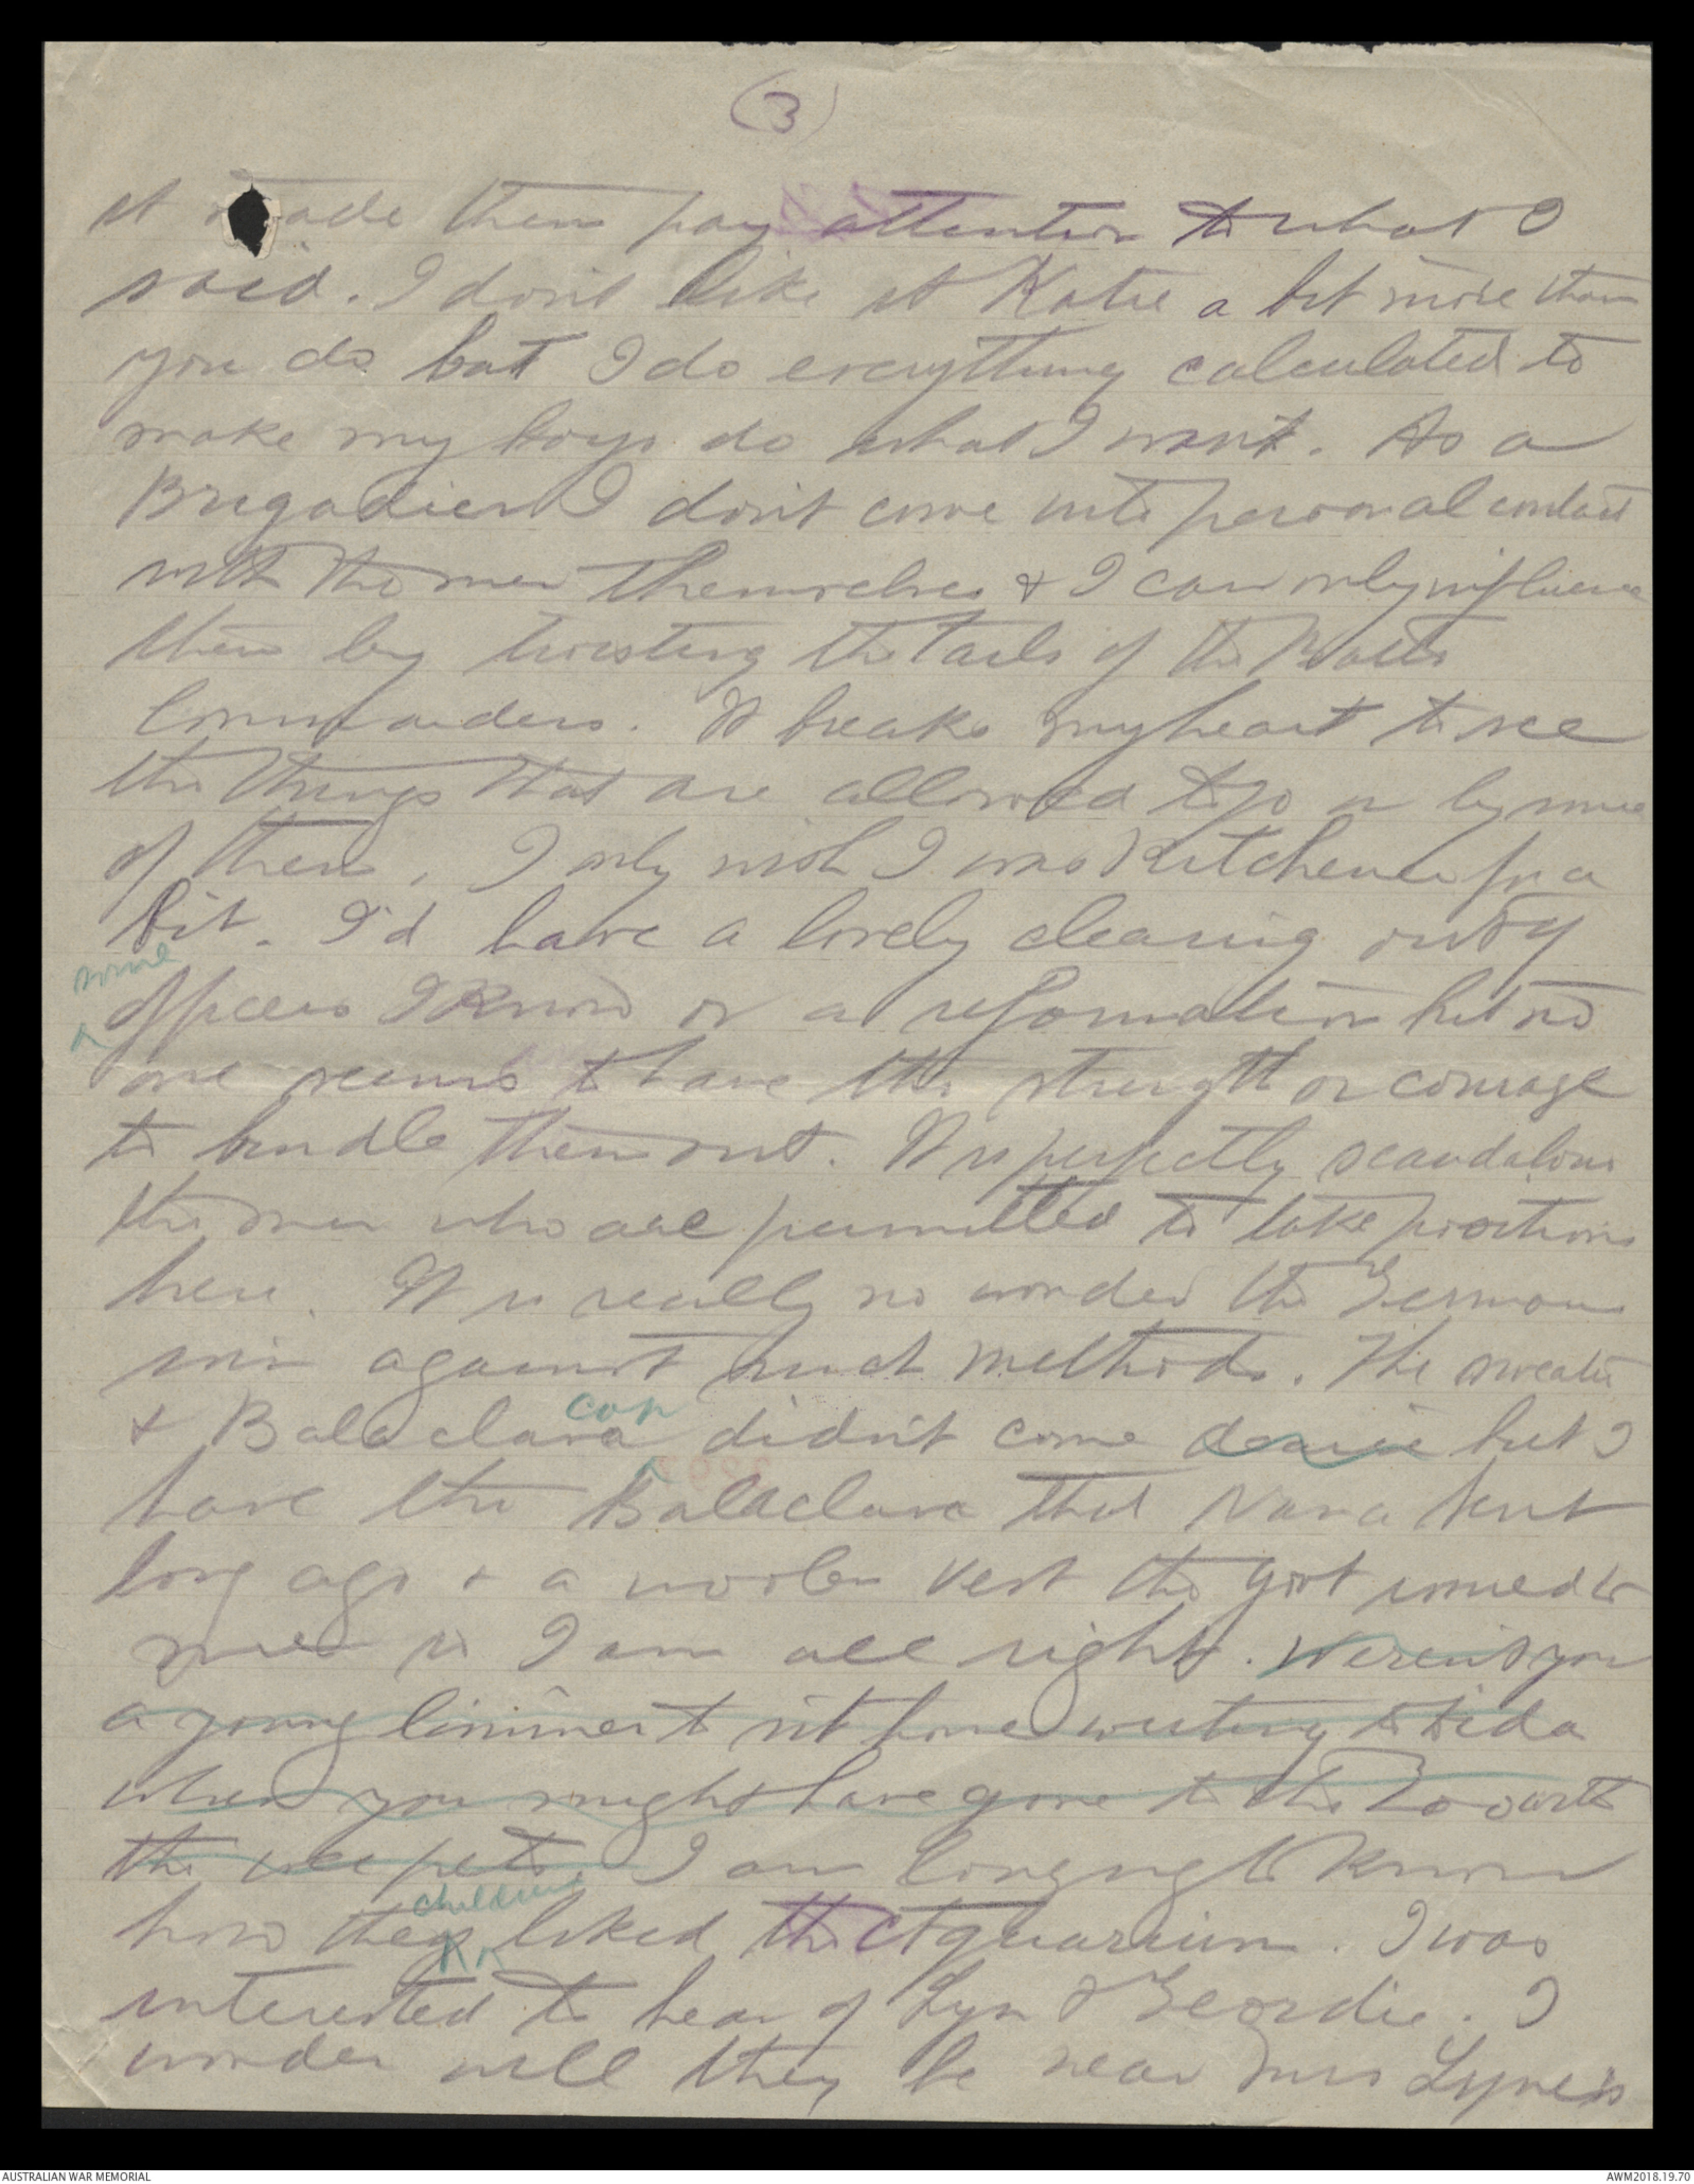 (3)
it made them pay attention to what I
said. I don't like it Katie a bit more than
you do but I do everything calculated to
make my boys do what I want. As a
Brigadier I don't come into personal contact
with the men themselves & I can only influence
them by twisting the tails of the Battn
Commanders. It breaks my heart to see
the things that are allowed to go on by some
of them. I only wish I was Kitchener for a
bit. I'd have a lovely clearing out of
some
officers I know or a reformation but no
one seems to have the strength or courage
to bundle them out. It is perfectly scandalous
the men who are permitted to take positions
here. It is really no wonder the Germans
win against such methods. The sweater
cap
& Balaclava didn't come dearie but I
have the Balaclava that Nana sent
long ago & a woolen vest the Govt issued to
me so I am all right. Weren't you
a young limmer to sit home writing to
when you might have gone to the Zoo with
the wee pets. I am longing to know
children
how they liked the Aquarium. I was
interested to hear of Lyn & Geordie. I
wonder will they be near Mrs Lynes's
AUSTRALIAN WAR MEMORIAL
AWM2018.19.70